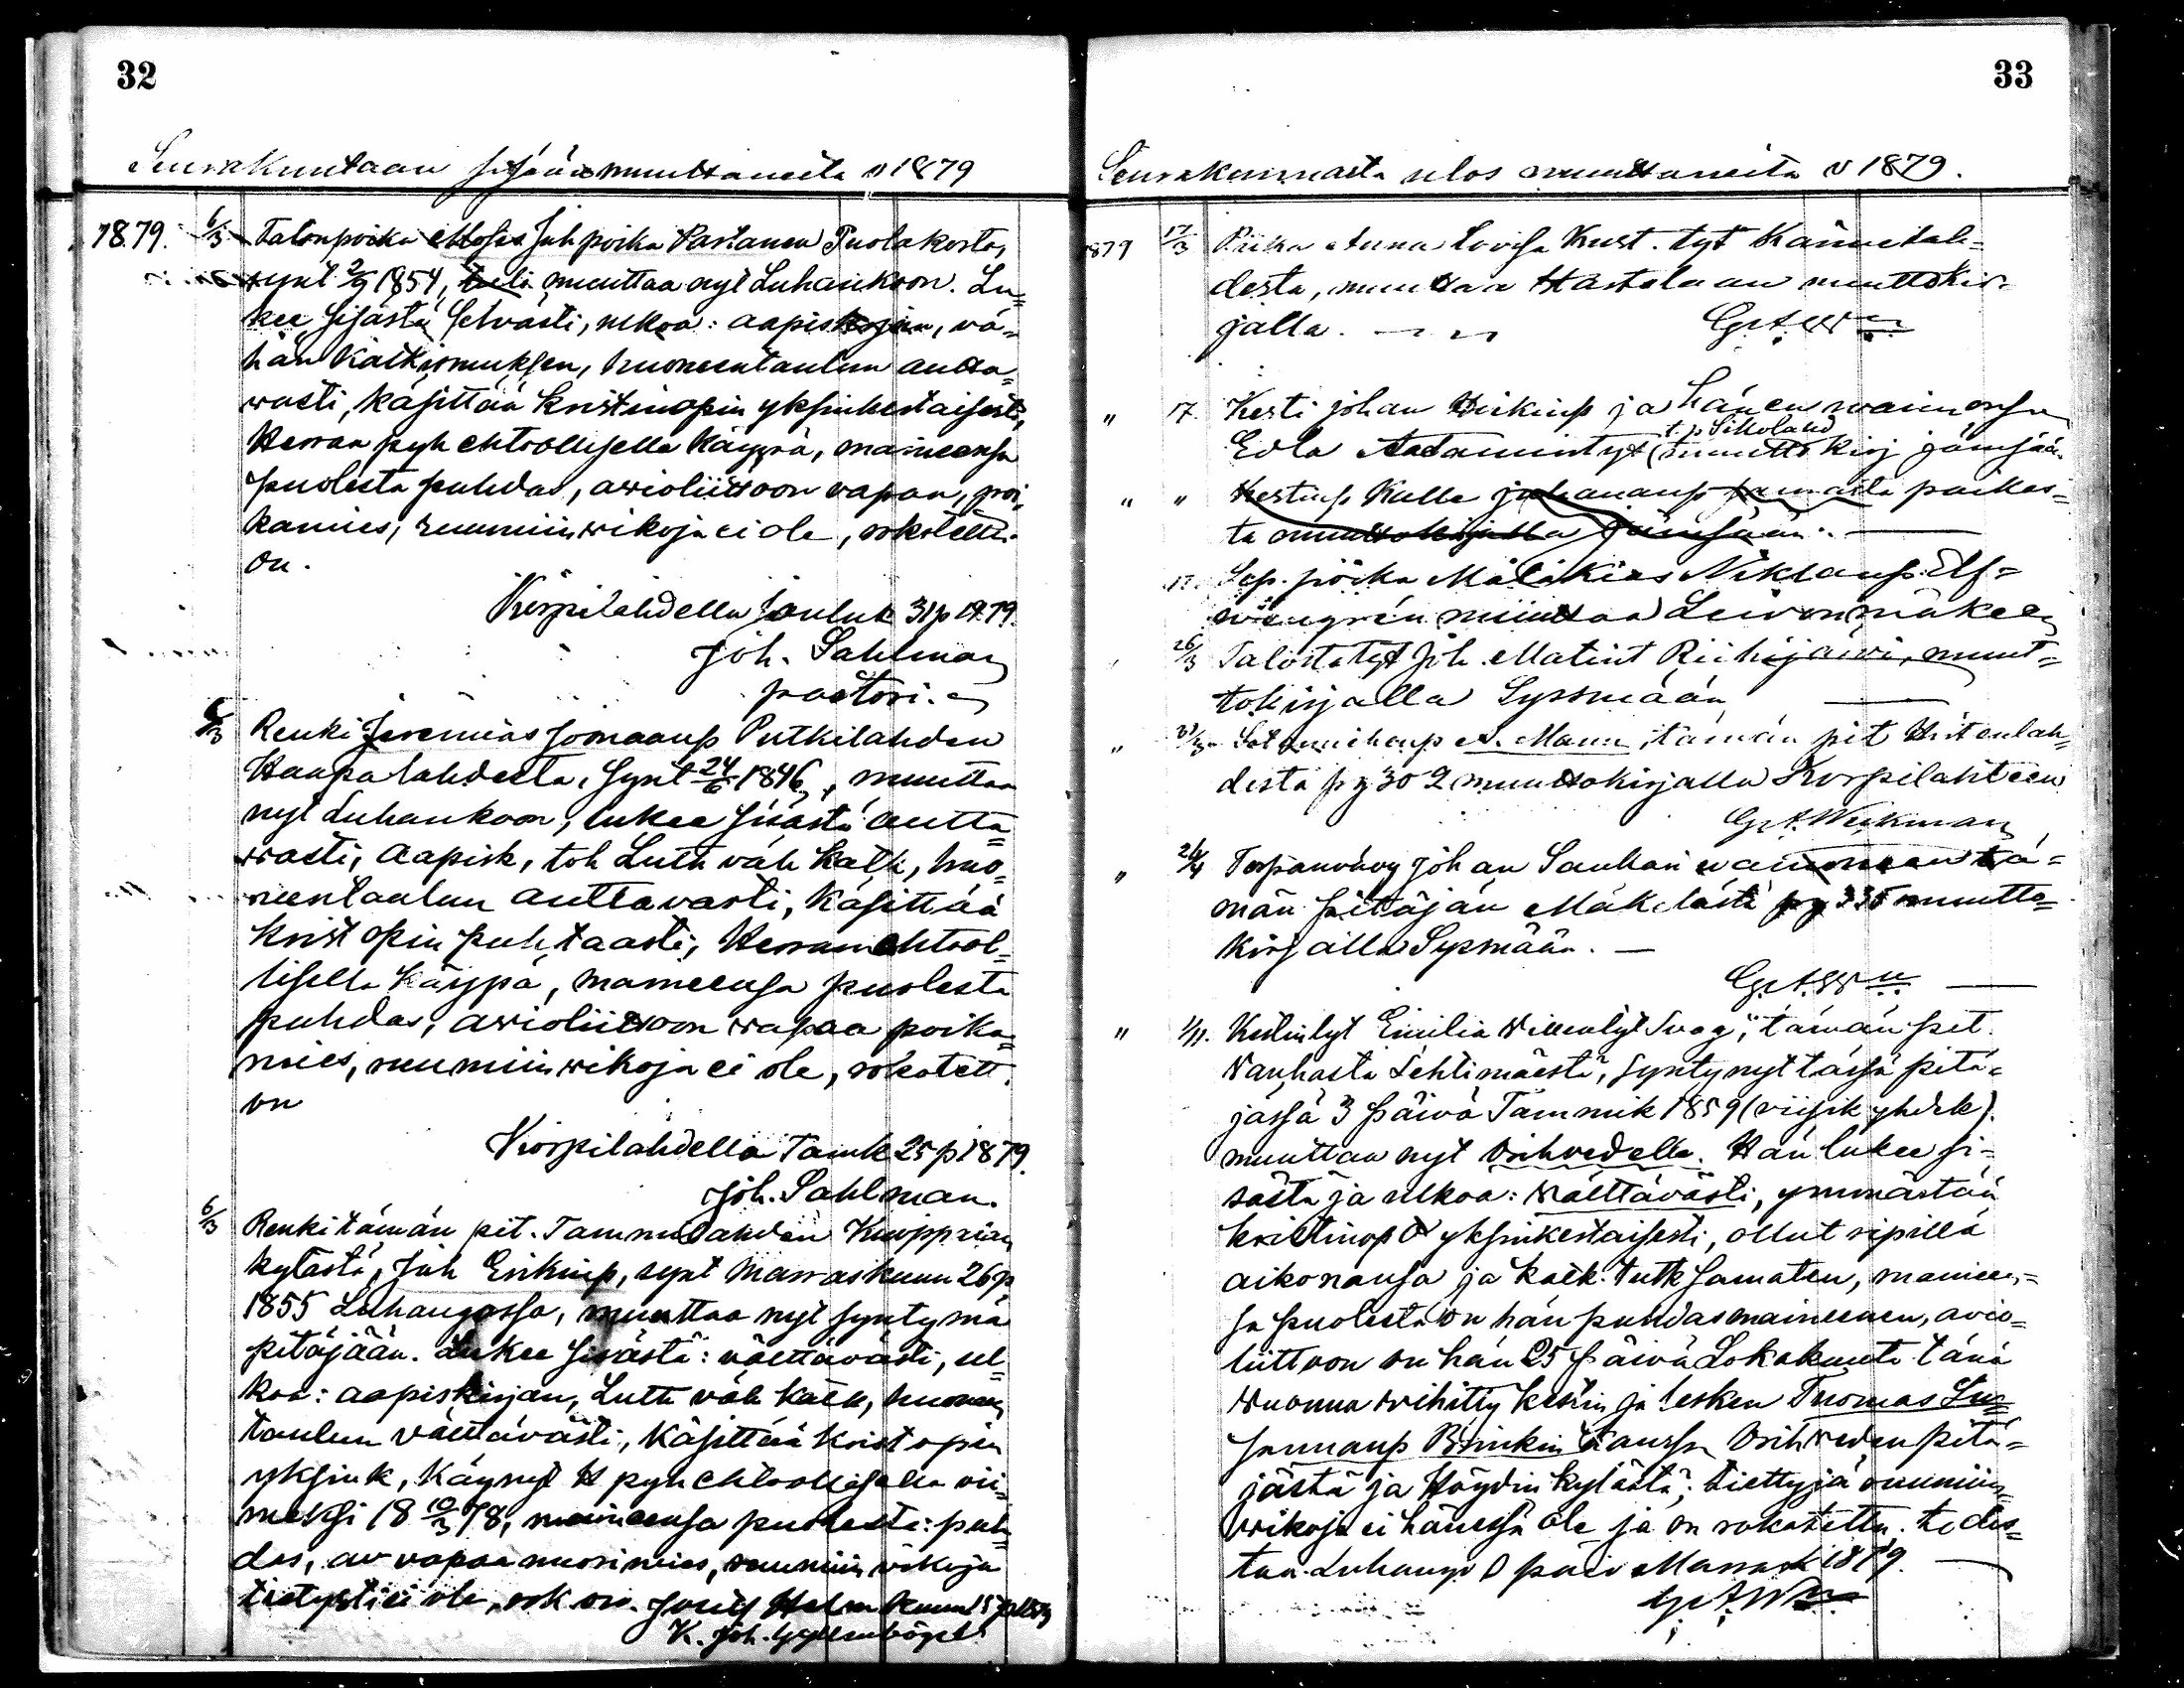 32
Seurakuntaan sisään muuttaneita v 1879
1879. 6/3 Talonpoika Moses Juh poika Pastanen Puolakosta,
synt 2/9 1854, muuttaa nyt Luhankoon. Lu=
kee sisästä selvästi, ulkoa: aapiskirjan, vä=
hän Katkismuksen, huoneentaulun autta=
wasti, käsittää kristinopin yksinkertaisesti,
Herran pyh ehtoollisella käypä, maineensa
puolesta puhdas, avioliittoon vapaa, poi=
kamies, ruumiin wikoja ei ole, rokotettu
on.
Korpilahdella Jouluk 31 p 1879.
Joh. Sahlman
pastori.
6/3 Renki Jeremias Jonaanp Putkilahden
Haapalahdesta, synt 24/6 1846, muuttaa
nyt Luhankoon, lukee sisästä autta=
wasti, aapisk, toh Luth väh Katk, huo=
neentaulun auttavasti, käsittää
krist opin puhtaasti, Herran ehtool=
lisella käypä, maineensa puolesta
puhdas, avioliittoon wapaa poika=
mies, ruumiin wikoja ei ole, rokotett.
on
Korpilahdella Tamk 25 p 1879.
Joh. Sahlman.
6/3 Renki tämän pit. Tammilahden
kylästä, Juh Erikinp, synt Marraskuun 26 p
1855 Luhangossa, muuttaa nyt syntymä
pitäjään. Lukee sisästä: välttävästi, ul=
koa: aapiskirjan, Luth väh katk, huoneen
taulun välttävästi, käsittää krist opin
yksink, käynyt H pyh ehtoollisella vii=
meksi 18 10/3 78, maineensa puolesta: puh=
das, av vapaa nuorimies, ruumiin wikoja
tietysti ei ole, rok on.
K. Joh. Gyllenbögel
33
Seurakunnasta ulos muuttaneita v 1879.
1879 17/3 Piika Anna Lovisa Kust. tyt
desta, muuttaa Hartolaan muuttokir=
jalla. G A W n
" 17 Kesti Johan Heikinp ja hänen waimonsa
t. p. Sikolahd
Edla Aadamintyt (muuttokirj Jämsään
" " Kestinp Kalle Johananp samasta paikas=
ta muuttokirjalla Jämsään.
17 Sep. poika Malakias Niklaup. Elf=
wengrén muuttaa Leivonmäkeen
26/3 Talost. tyt Joh. Matint Riihijärvi, muut=
tokirjalla Sysmään
" A. Mann, tämän pit Hietenlah=
desta pg 302 muuttokirjalla Korpilahteen
G. A. Wickman
" 26/4 Torpanvävy Johan Saukon waimoneen tä=
män pitäjän Mäkelästä pg 335 muutto=
kirjalla Sysmään.
G. A. W n
" 1/11. Kestintyt Emilia Willentyt Svag, tämän pit.
Vanhasta Lehtimäestä, syntynyt tässä pitä=
jässä 3 päivä Tammik 1859 (viisik yhdek).
muuttaa nyt Orihvedelle. Hän lukee si=
sästä ja ulkoa: wälttävästi, ymmärtää
kristinop yksinkertaisesti, ollut ripillä
aikonansa ja kaik. tutk samaten, maineen=
sa puolesta on hän puhdasmaineinen, avio=
liittoon on hän 25 päivä Lokakuuta tänä
wuonna wihitty kestin ja lesken Thomas
sannanp Brinkin kanssa Orihweden pitä=
jästä ja Höydin kylästä; tiettyjä ruumiin=
wikoja ei hänessä ole ja on rokotettu. todis=
taa Luhang päiv Marrask 1879.
G A W n